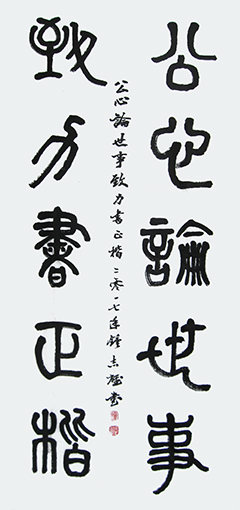 公心論世事
致力書正楷
公心論世事致力書正楷二零一七年鍾志書